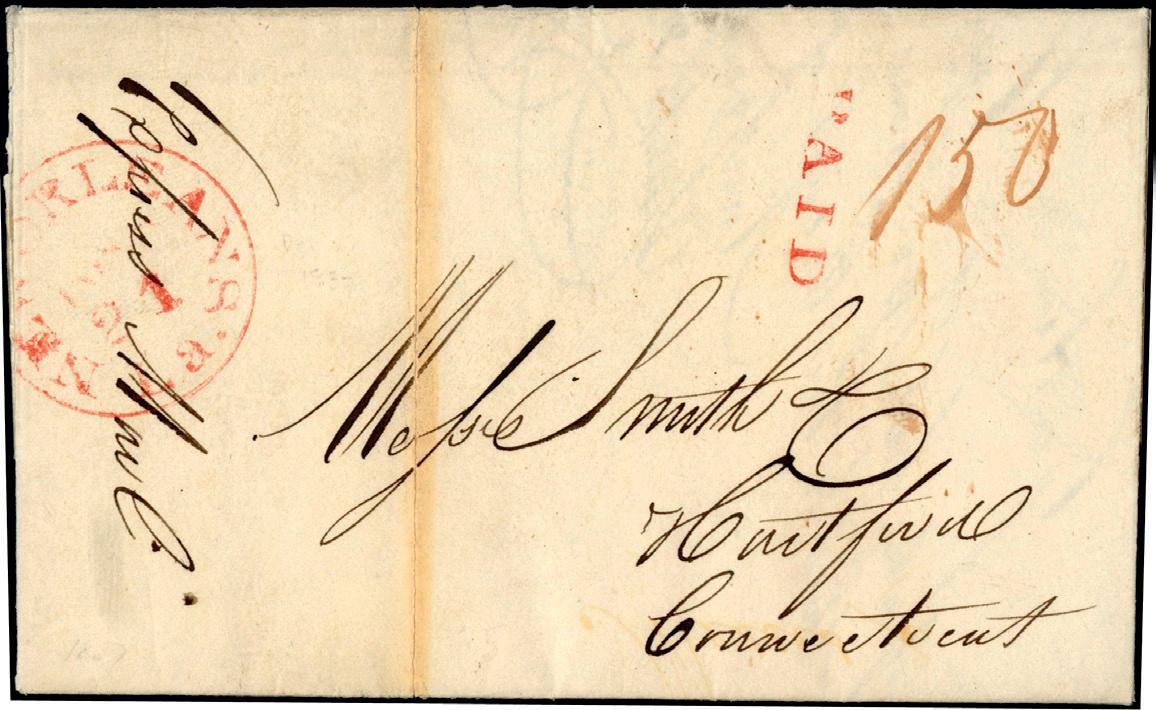 Express Mail.
NEW ORLEANS
PAID
150
Messrs Smith & Co
Hartford
Connecticut